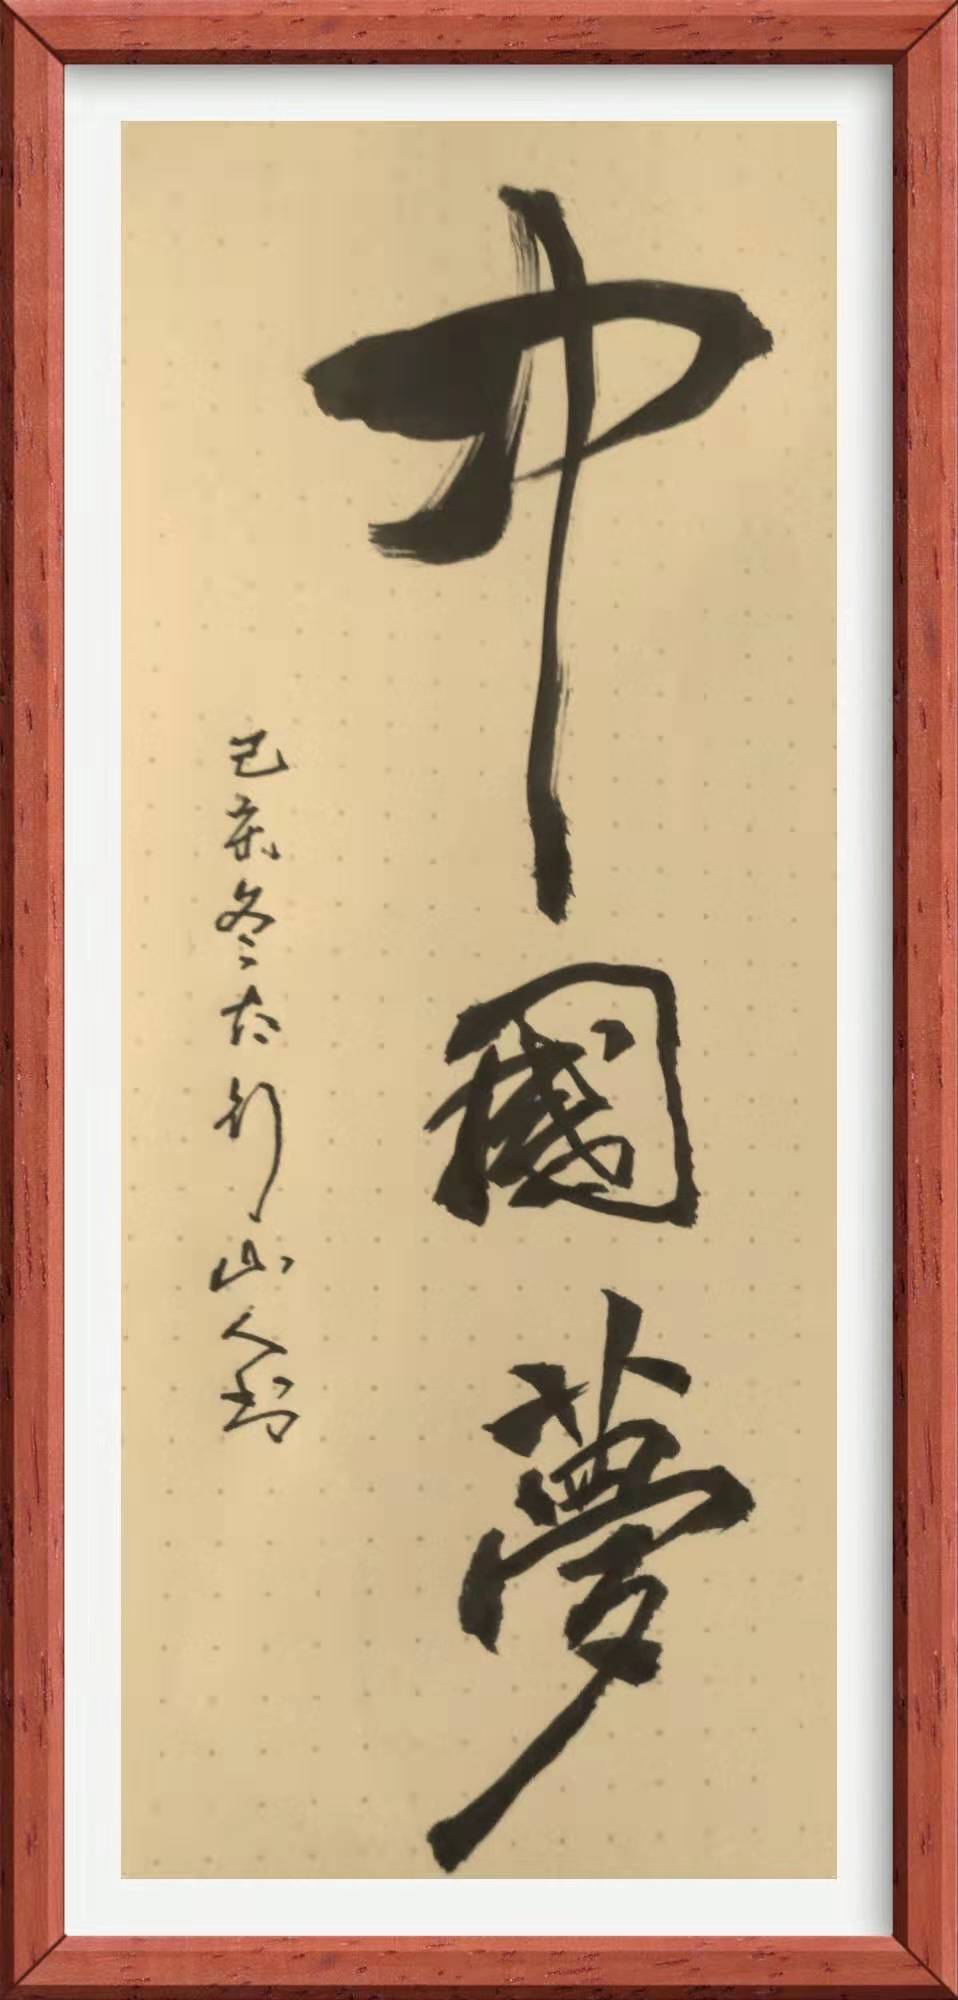 中國夢
己亥冬太行山人书